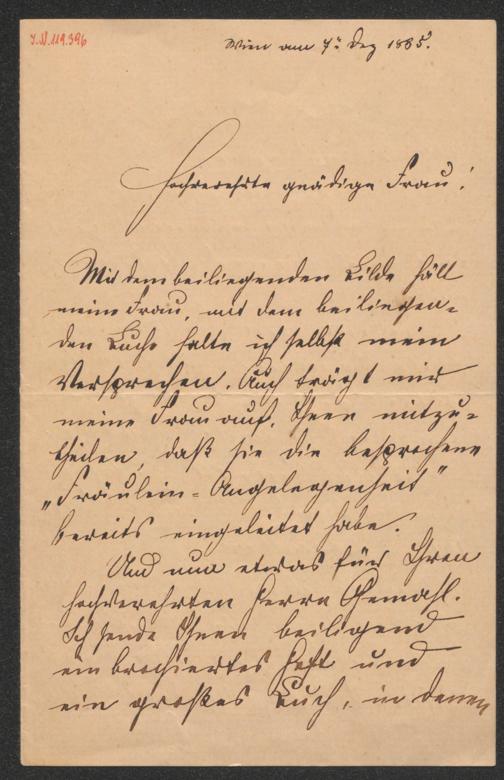 J.N. 119.396
Wien am 7ten Dez 1885.
Hochverehrte gnädige Frau!
Mit dem beiliegenden Bilde hält
meine Frau, mit dem beiliegen-
den Buche halte ich selbst mein
Versprechen. Auch trägt mir
meine Frau auf, Ihnen mitzu-
theilen, daß sie die besprochene
„Fräulein-Angelegenheit"
bereits eingeleitet habe.
Und nun etwas für Ihren
hochverehrten Herrn Gemahl.
Ich sende Ihnen beiligend
ein brochiertes Heft und
ein großes Buch, in denen